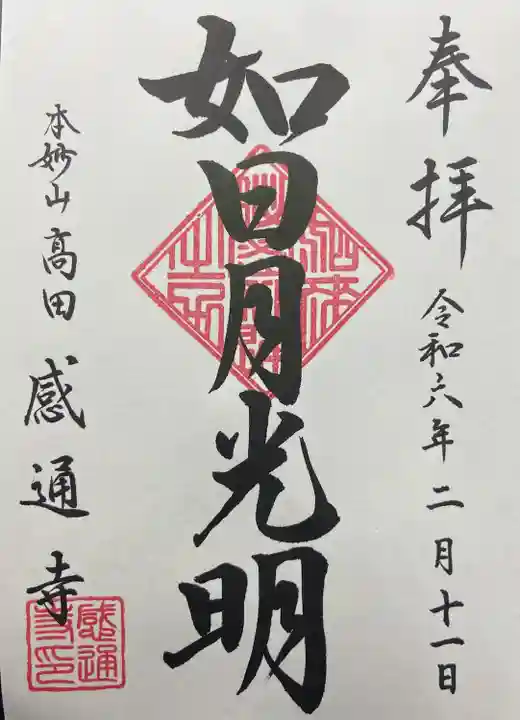 奉拝
令和六年二月十一日
如日月光明
本妙山高田感通寺
感通寺印